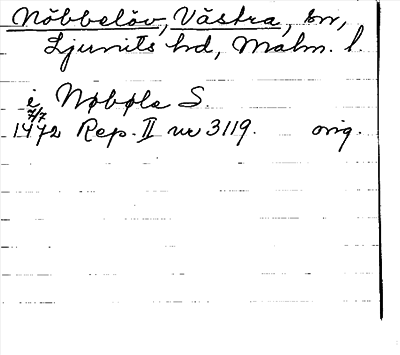 Nöbbelöv, Västra, sn,
Ljunits hd, Malm. l.
i Nøbøle S.
7/7
1472 Rep. II nr 3119. orig.